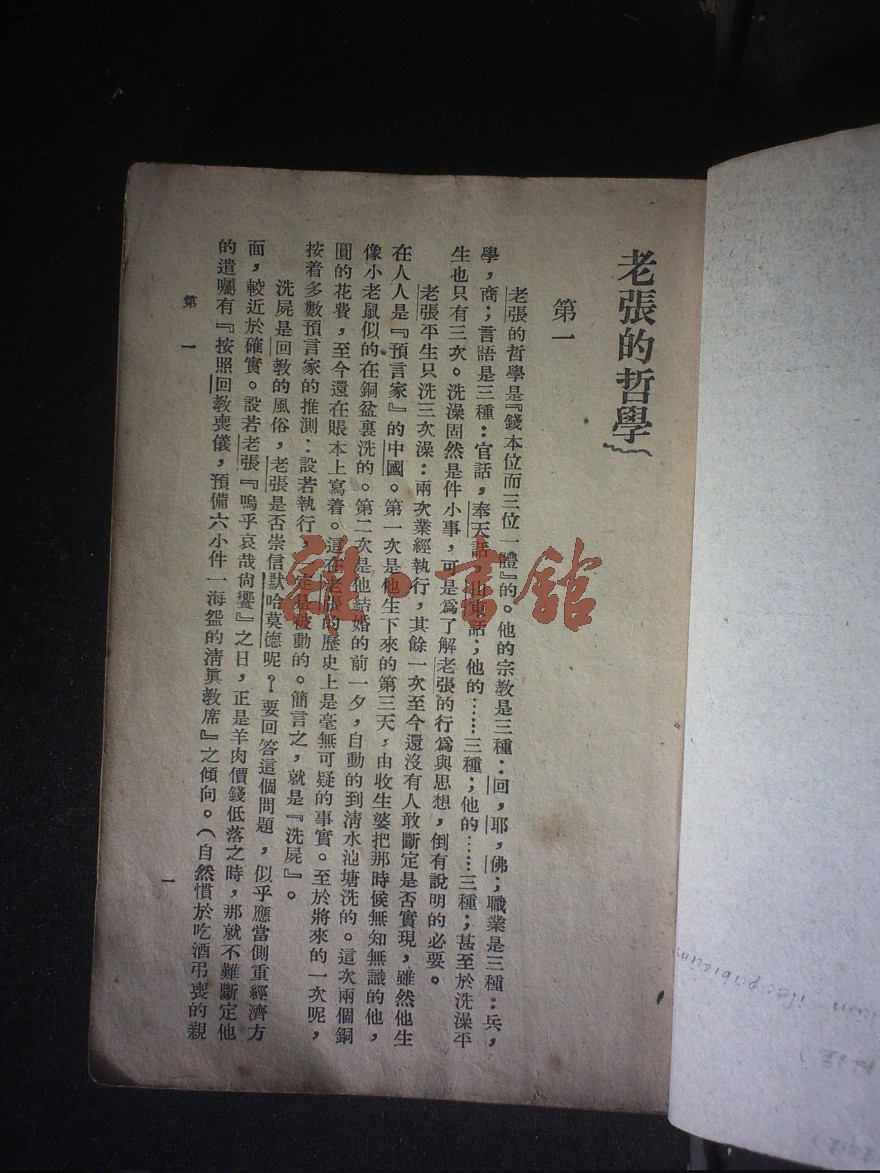 老張的哲學
第一
老張的哲學是『錢本位而三位一體』的。他的宗教是三種：回，耶，佛；職業是三種：兵，
學，商；言語是三種：官話，奉天話，山東話；他的……三種；他的……三種；甚至於洗澡平
生也只有三次。洗澡固然是件小事，可是爲了解老張的行爲與思想，倒有說明的必要。
老張平生只洗三次澡：兩次業經執行，其餘一次至今還沒有人敢斷定是否實現，雖然他生
在人人是『預言家』的中國。第一次是他生下來的第三天，由收生婆把那時候無知無識的他，
像小老鼠似的在銅盆裏洗的。第二次是他結婚的前一夕，自動的到清水池塘洗的。這次兩個銅
圓的花費，至今還在賬本上寫着。這在老張的歷史上是毫無可疑的事實。至於將來的一次呢，
按着多數預言家的推測：設若執行，一定是被動的。簡言之，就是『洗屍』。
洗屍是回教的風俗，老張是否崇信默哈莫德呢？要回答這個問題，似乎應當側重經濟方
面，較近於確實。設若老張『嗚乎哀哉尙饗』之日，正是羊肉價錢低落之時，那就不難斷定他
的遺囑有『按照回教喪儀，預備六小件一海盌的清眞教席』之傾向。（自然慣於吃酒弔喪的親
第一
一
雜·書館